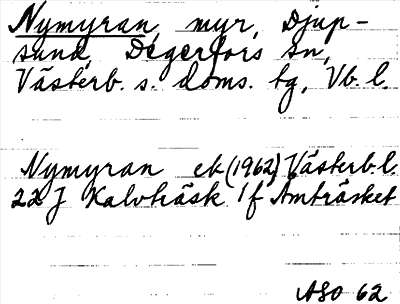 Nymyran, myr, Djup-
sund, Degerfors sn,
Västerb. s. doms. tg, Vb. l.
Nymyran ek (1962) Västerb. l.
22 J Kalvträsk 1 f Åmträsket
ASO 62